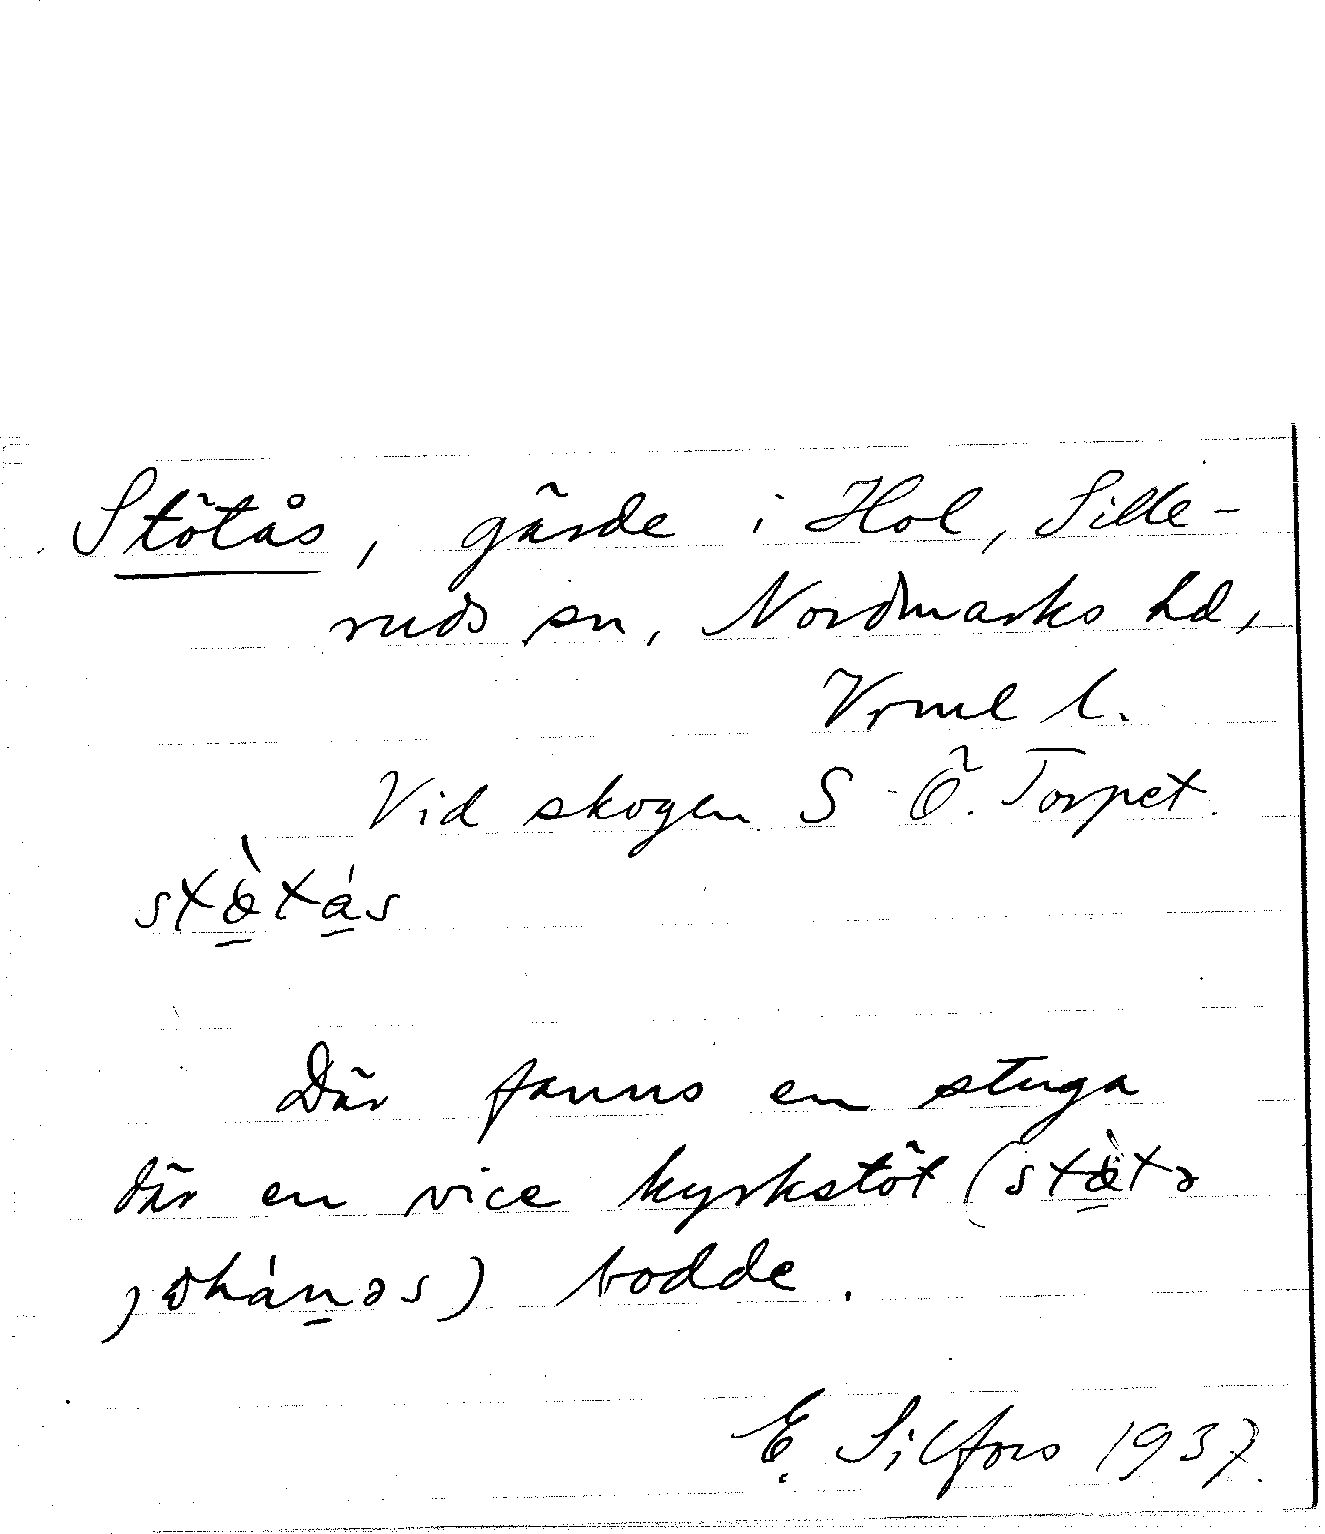 Stötås, gärde i Hol, Sille-
ruds sn, Nordmarks hd,
Vrml l.
Vid skogen S Ö. Torpet.
stæ̀tás
Där fanns en stuga
där en vice kyrkstöt (stæ̀tə
johánəs) bodde.
E. Silfors 1937.